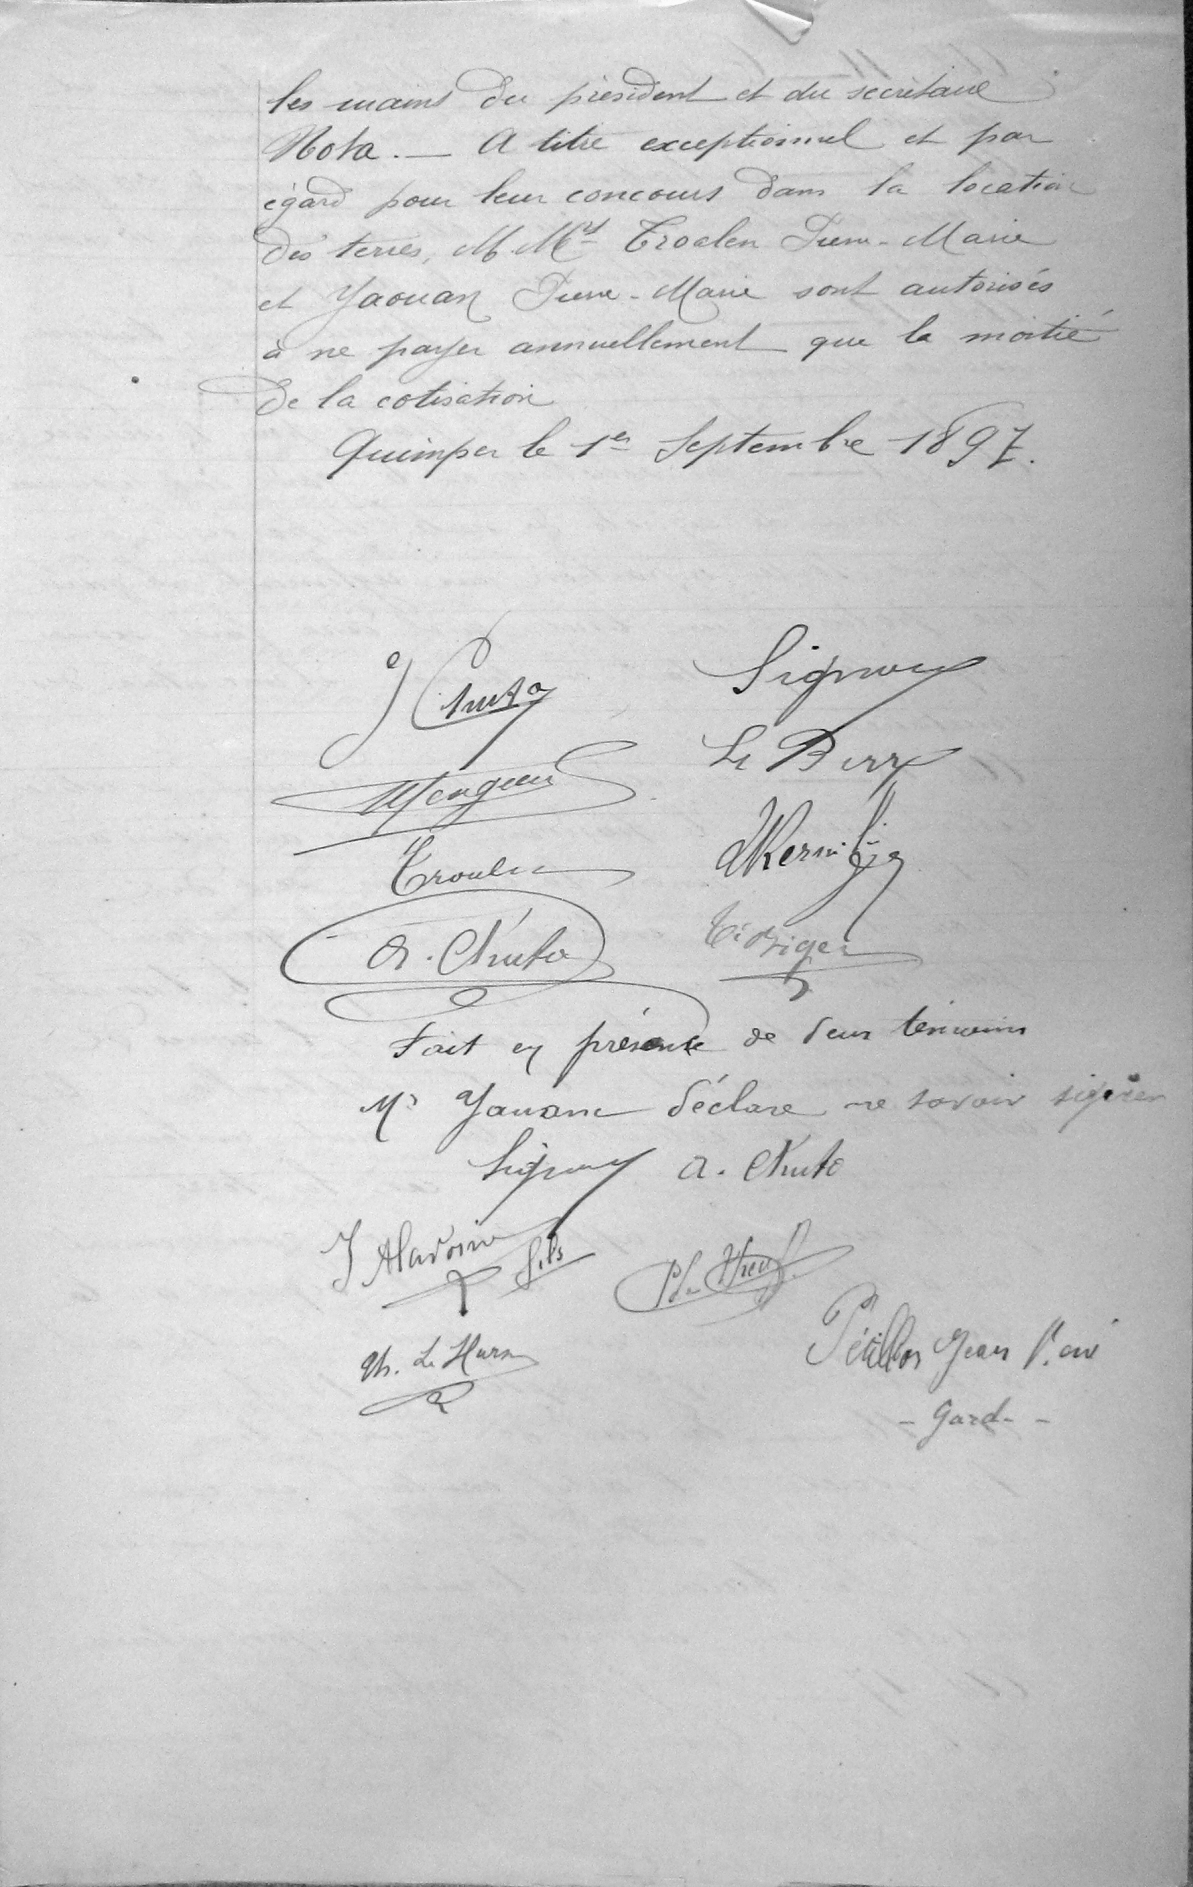 les mains du président et du secrétaire
Nota. — A titre exceptionnel et par
égard pour leur concours dans la location
des terres, M Mrs Troalen Pierre-Marie
et Yaouan Pierre-Marie sont autorisés
à ne payer annuellement que la moitié
de la cotisation
Quimper le 1er Septembre 1897.
Signour
Le Berre
A. Chuto
Fait en présence de deux témoins
Mr Yaouanc déclare ne savoir signer
Signour A. Chuto
J Alavoine fils
Th. Le Hars
Pétillon Jean
- Gard- -